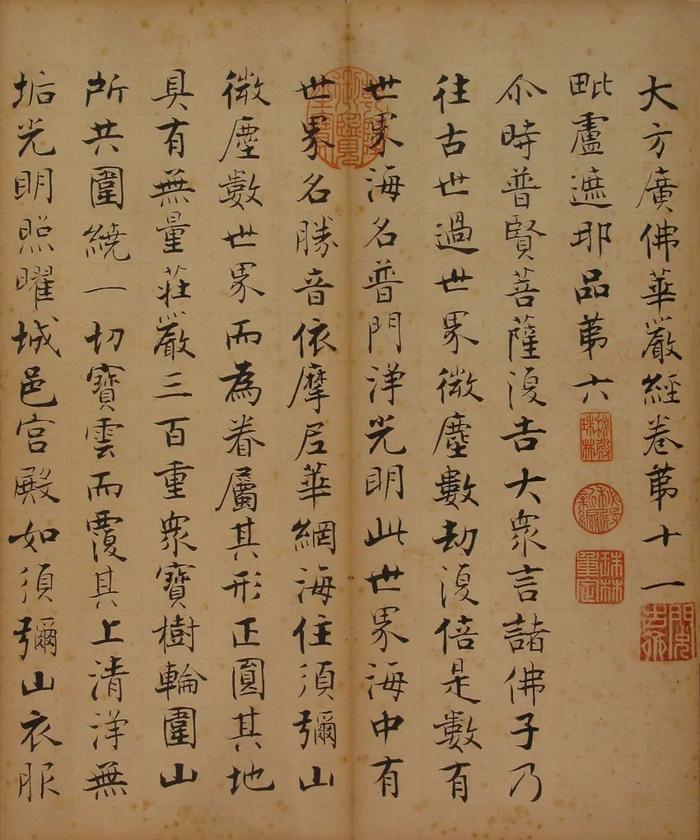 大方廣佛華嚴經卷第十一
毗盧遮那品第六
尒時普賢菩薩復告大衆言諸佛子乃
往古世過世界微塵數劫復倍是數有
世界海名普門淨光明此世界海中有
世界名勝音依摩尼華網海住須彌山
微塵數世界而為眷屬其形正圓其地
具有無量莊嚴三百重衆寶樹輪圍山
所共圍繞一切寶雲而覆其上清淨無
垢光明照曜城邑宮殿如須彌山衣服